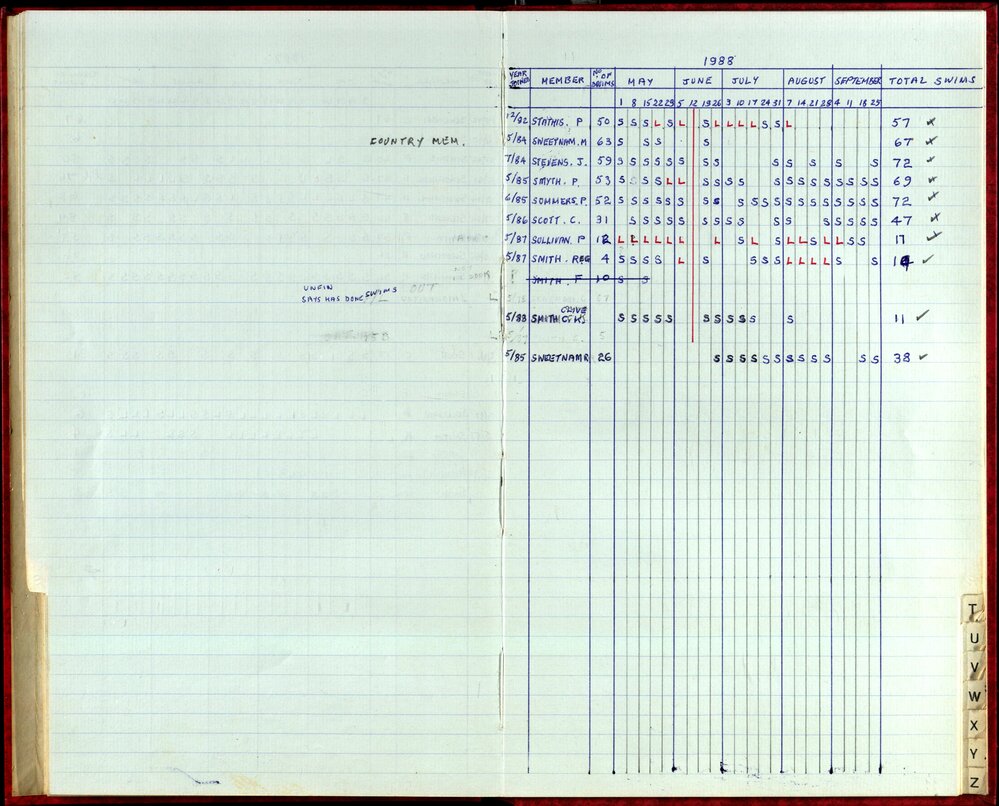 1988
YEAR JOINED MEMBER NO. OF SWIMS MAY JUNE JULY AUGUST SEPTEMBER TOTAL SWIMS
1 8 15 22 29 5 12 19 26 3 10 17 24 31 7 14 21 28 4 11 18 25
12/82 STATHIS. P 50 S S S L S L S L L L L S S L 57
COUNTRY MEM. 5/84 SWEETNAM. M 63 S S S S 67
7/84 STEVENS. J. 59 S S S S S S S S S S S S S 72
5/85 SMYTH. P. 53 S S S S L L S S S S S S S S S S S S S 69
6/85 SOMMERS. P. 52 S S S S S S S S S S S S S S S S S S S S 72
5/86 SCOTT. C. 31 S S S S S S S S S S S S S S S S 47
5/87 SULLIVAN. P 12 L L L L L L L S L S L L S L L S S 17
5/87 SMITH. REG 4 S S S S L S S S S L L L L S S 14
SMITH. F 10 S S
UNFIN
SAYS HAS DONE SWIMS
CLIVE
5/88 SMITH S S S S S S S S S S S 11
5/85 SWEETNAM R 26 S S S S S S S S S S S S 38
T
U
V
W
X
Y
Z